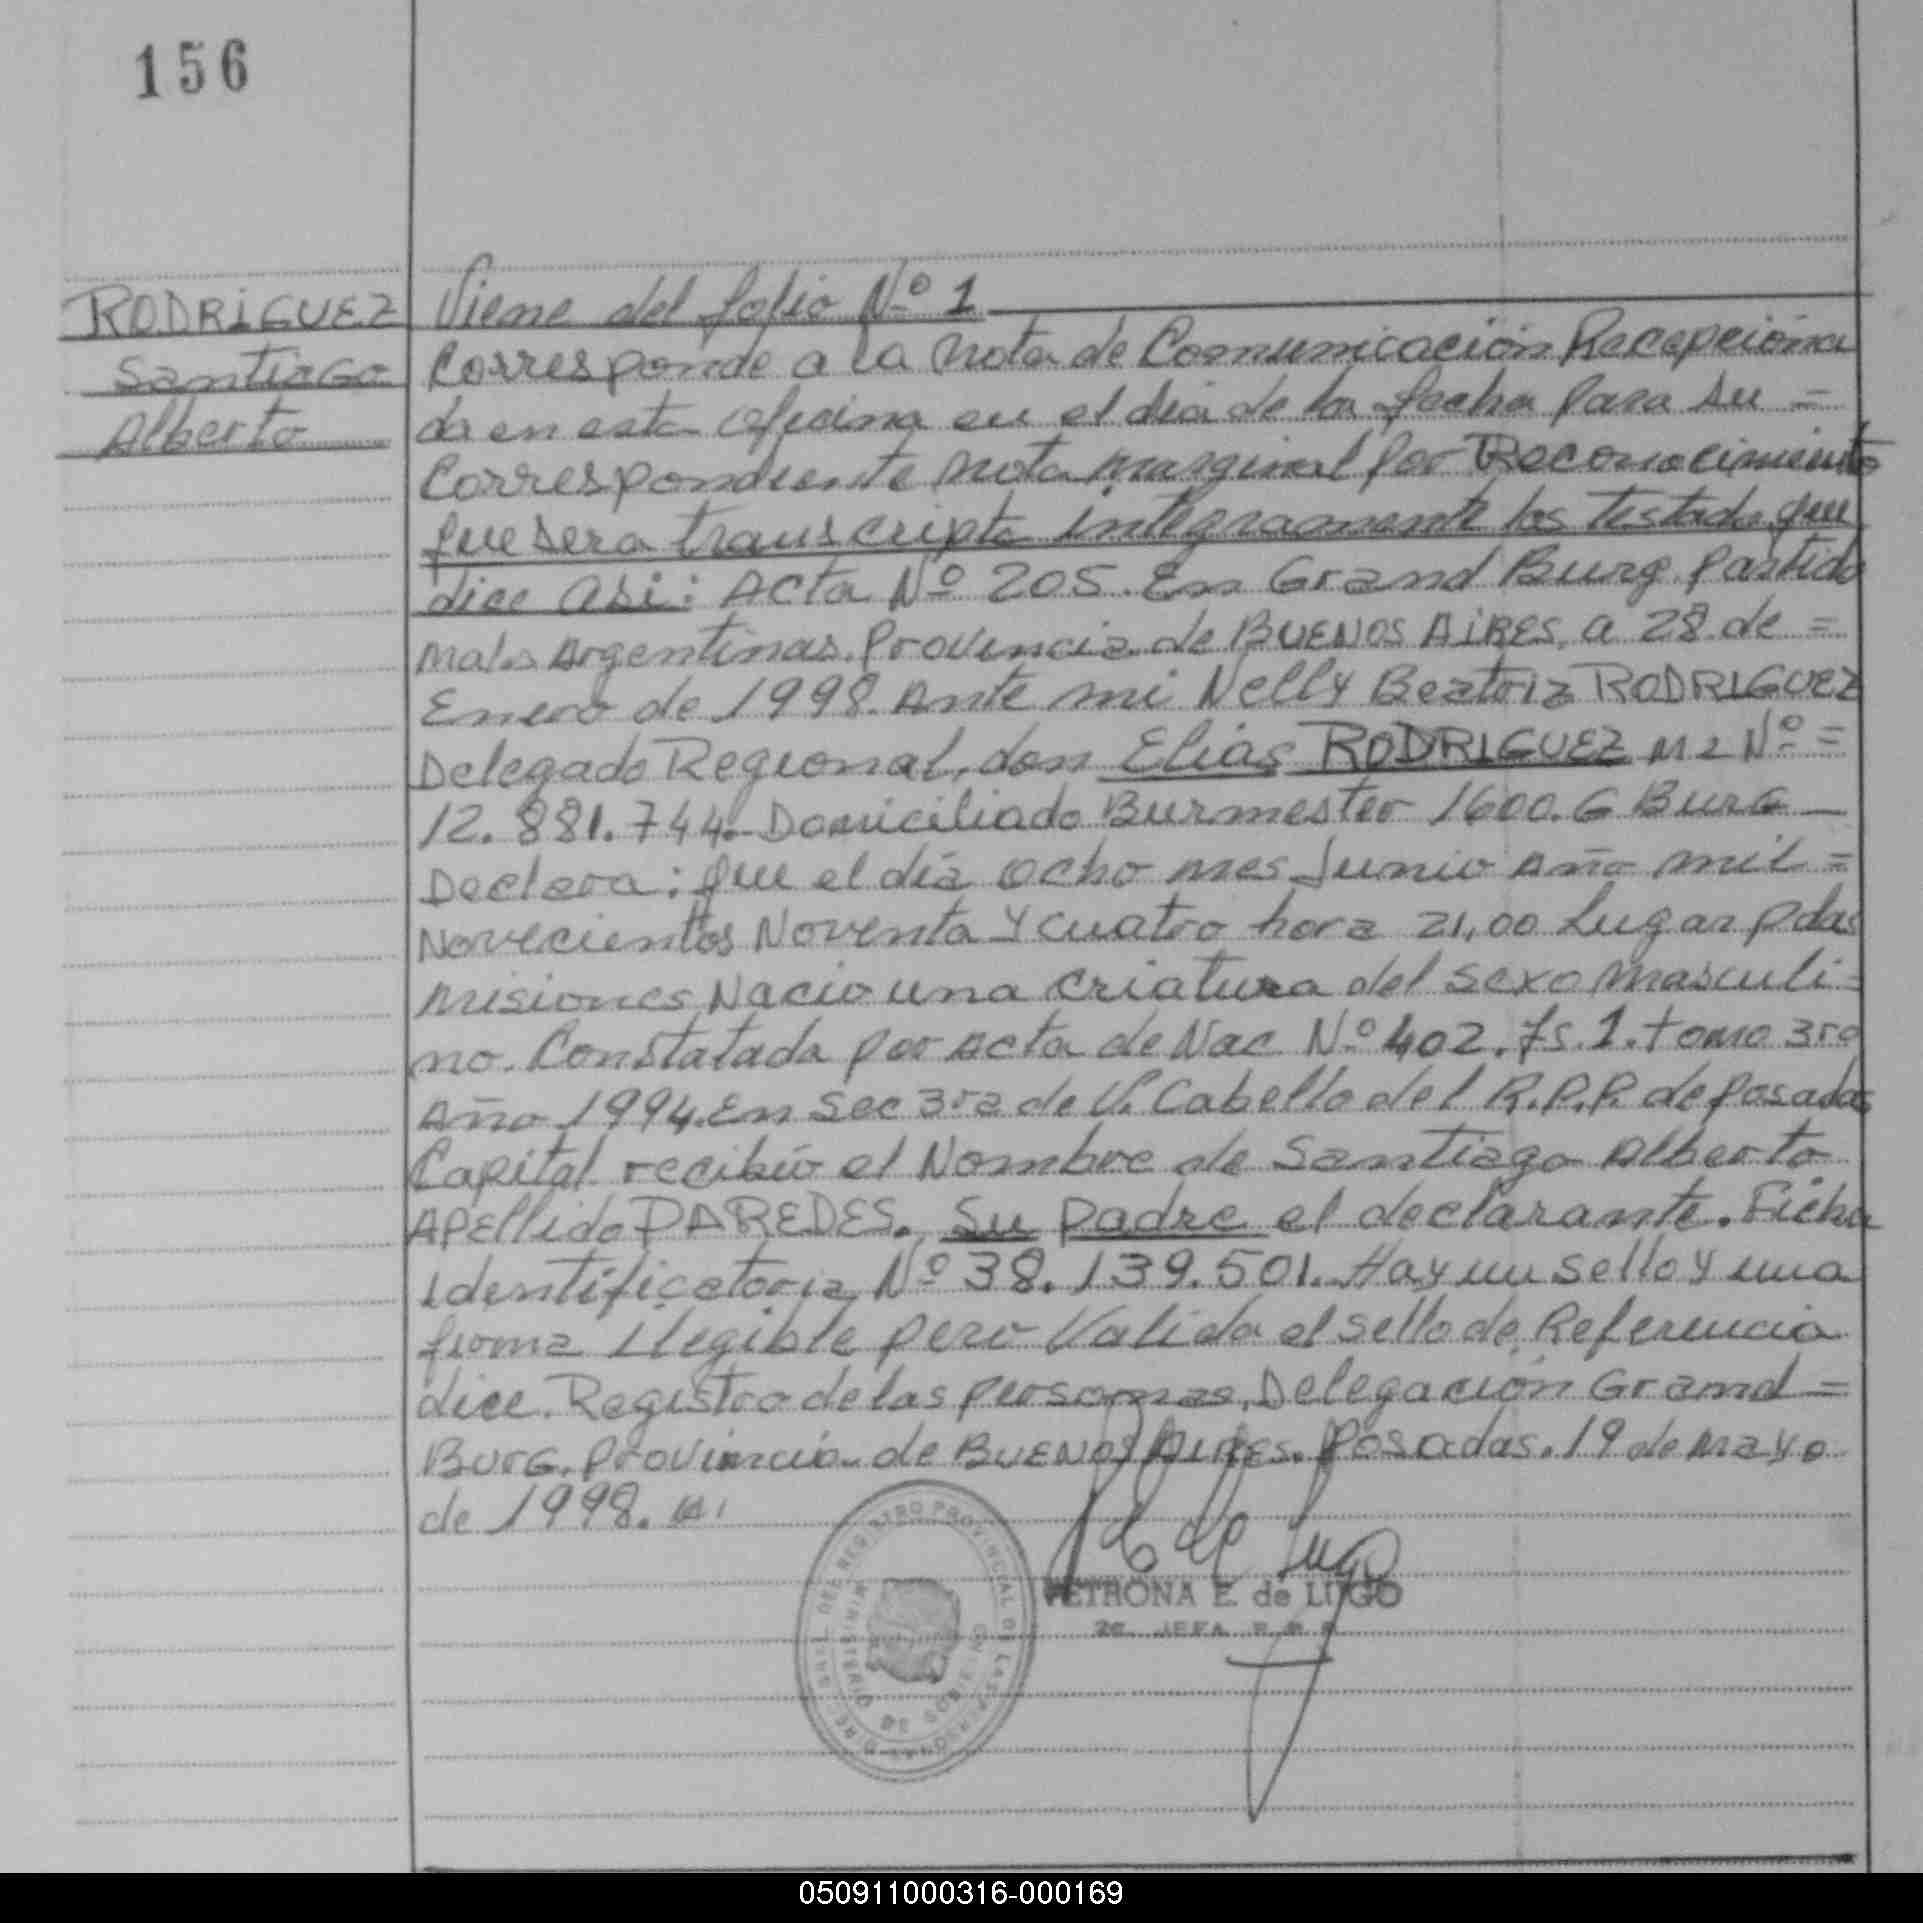 156
RODRIGUEZ
Santiago
Alberto
Viene del folio Nº 1
Corresponde a la nota de Comunicación Recepciona
da en esta oficina en el dia de la fecha para su =
Correspondiente nota marginal por Reconocimiento
que sera transcripta integramente los testado que
dice asi: Acta Nº 205. En Grand Burg. Partido
Malas Argentinas. Provincia de BUENOS AIRES, a 28 de =
Enero de 1998. Ante mi Nelly Beatriz RODRIGUEZ
Delegado Regional, don Elias RODRIGUEZ MI Nº =
12.881.744.- Domiciliado Burmester 1600. G Burg —
Declara: que el día ocho mes Junio Año mil =
Novecientos Noventa y cuatro hora 21,00 Lugar pdas
misiones, Nacio una criatura del sexo masculi =
no. Constatada por Acta de Nac Nº 402. fs. 1. tomo 3ro
Año 1994. En Sec 3ra de V. Cabello del R.P.P. de posadas
Capital recibió el Nombre de Santiago Alberto
Apellido PAREDES. Su padre el declarante. Ficha
Identificatoria Nº 38.139.501. Hay un sello y una
firma ilegible pero Valida el sello de Referencia
dice. Registro de las personas, Delegación Grand =
Burg. Provincia de BUENOS AIRES. Posadas. 19 de mayo
de 1998.
PETRONA E. de LUGO
JEFA
050911000316-000169